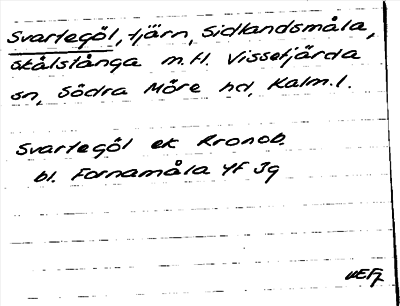 Svartegöl, tjärn, Sidlandsmåla,
Skålstånga m.fl. Vissefjärda
sn, Södra Möre hd, Kalm.l.
Svartegöl ek Kronob.
bl. Fornamåla 4f Jg